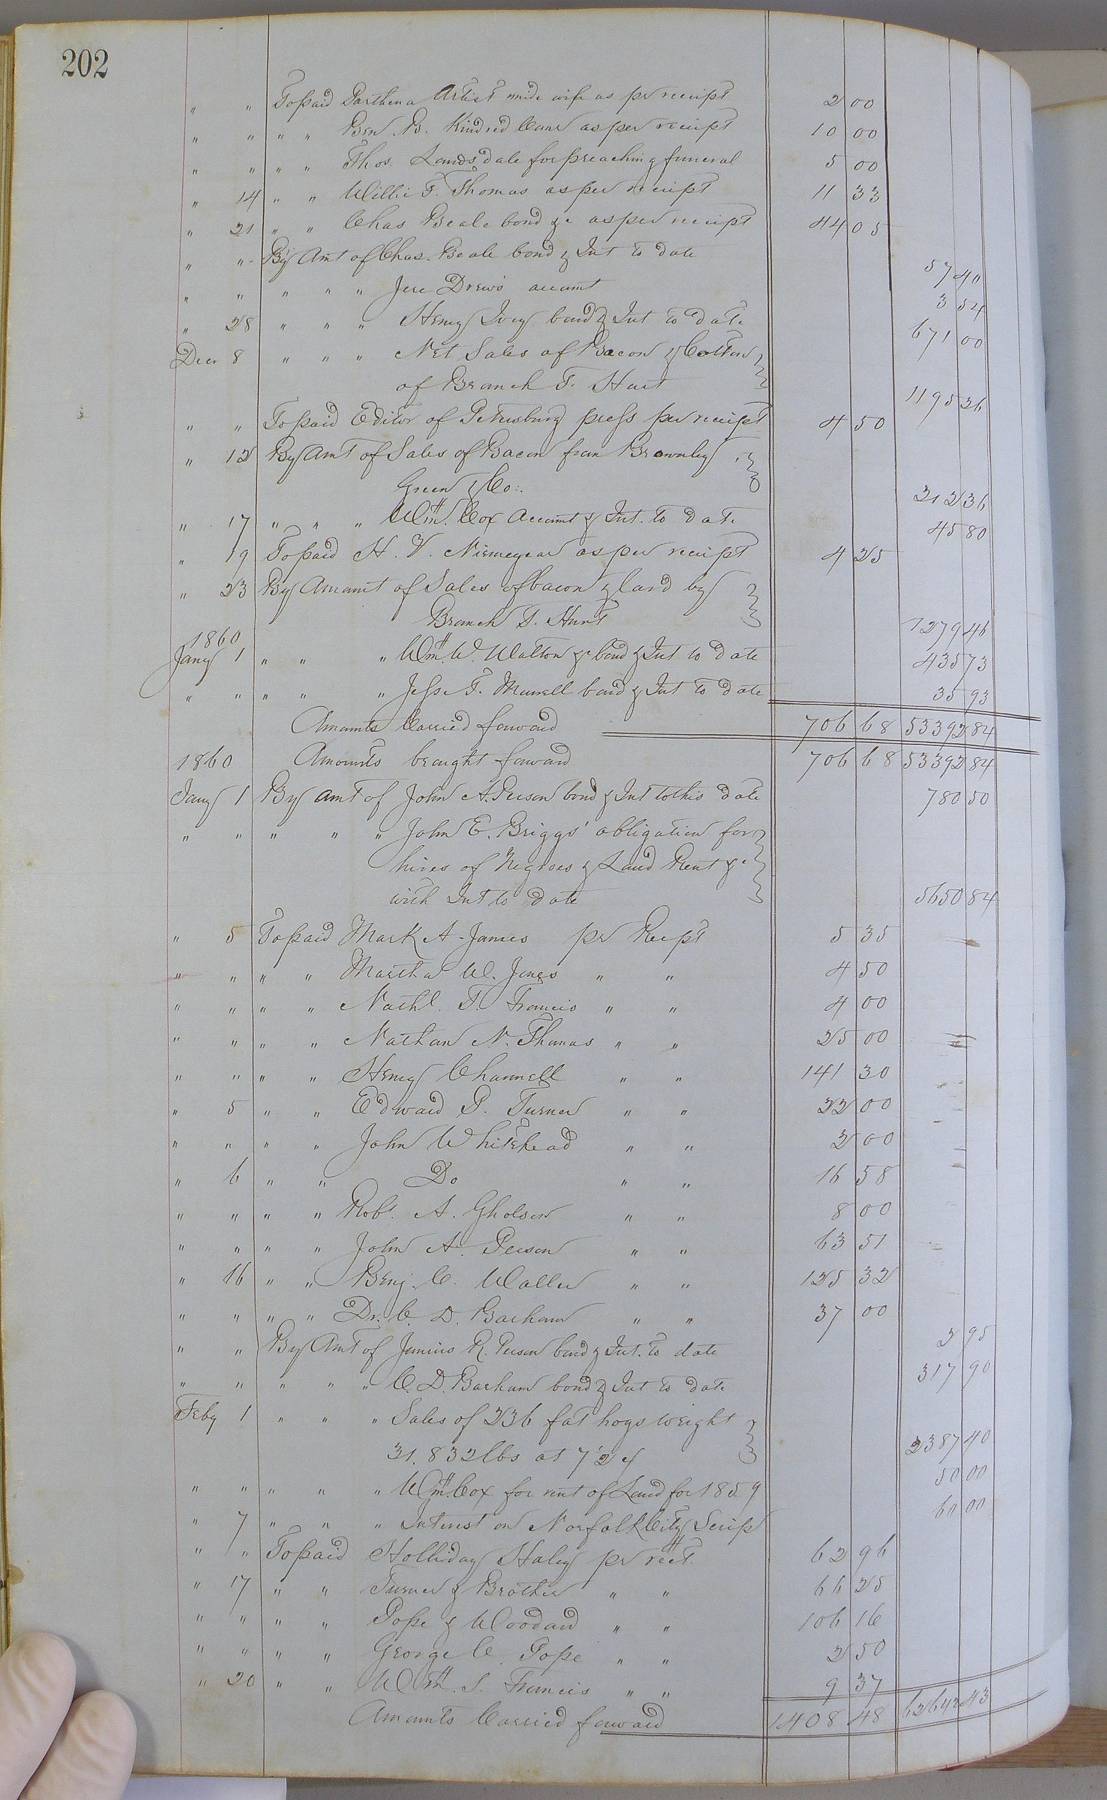 202
" " To paid Parthena Artist midwife as per receipt 2 00
" " " " Ben. B. Kindred Coms as per receipt 10 00
" " " " Thos. Landsdale for preaching funeral 5 00
" 14 " " Willie T. Thomas as per receipt 11 33
" 21 " " Chas Beale bond &c as per receipt 44 05
" " By Amt of Chas. Beale bond & Int to date 57 40
" " " " " Jere Drews account 3 54
" 28 " " " Henry Ivey bond & Int to date 671 00
Decr 8 " " " Net Sales of Bacon & Cotton
of Branch T. Hurt 1195 26
" " To paid Editor of Petersburg press per receipt 4 50
" 12 By Amt of Sales of Bacon from Brownley
Green & Co: 212 36
" 17 " " " Wm. H. Cox Account & Int. to date 45 80
" 19 To paid H. V. Niemeyear as per receipt 4 25
" 23 By Amount of Sales of bacon & lard by
Branch T. Hurt 1279 46
1860
Jany 1 " " " Wm. W. Walton & bond & Int to date 435 73
" " " " " Jesse T. Murrell bond & Int to date 35 93
Amounts Carried forward 706 68 53392 84
1860 Amounts brought forward 706 68 53392 84
Jany 1 By Amt of John A. Person bond & Int to this date 780 50
" " " " " John E. Briggs' obligation for
hires of Negroes & Land Rent &c
with Int to date 5650 84
" 5 To paid Mark A. James per Recpt 5 35
" " " " Martha W. Jones " " 4 50
" " " " Nathl. T. Francis " " 4 00
" " " " Nathan N. Thomas " " 25 00
" " " " Henry Channell " " 141 30
" 5 " " Edward P. Turner " " 22 00
" " " " John Whitehead " " 2 00
" 6 " " Do " " 16 58
" " " " Robt. A. Gholson " " 8 00
" " " " John A. Person " " 63 51
" 16 " " Benj. C. Waller " " 125 32
" " " " Dr. C. D. Barham " " 37 00
" " By Amt of Junius R. Person bond & Int. to date 2 95
" " " " " C. D. Barham bond & Int to date 317 90
Feby 1 " " " Sales of 236 fat hogs weight
31.832 lbs at 7½ ¢ 2387 40
" " " " " Wm. H. Cox for rent of Land for 1859 50 00
" 7 " " " Interest on Norfolk City Scrip 60 00
" " To paid Holliday Haley per rect. 62 96
" 17 " " Turner & Brother " " 66 25
" " " " Pope & Woodard " " 106 16
" " " " George C. Pope " " 2 50
" 20 " " Wm. S. Francis " " 9 37
Amounts Carried forward 1408 48 62642 43